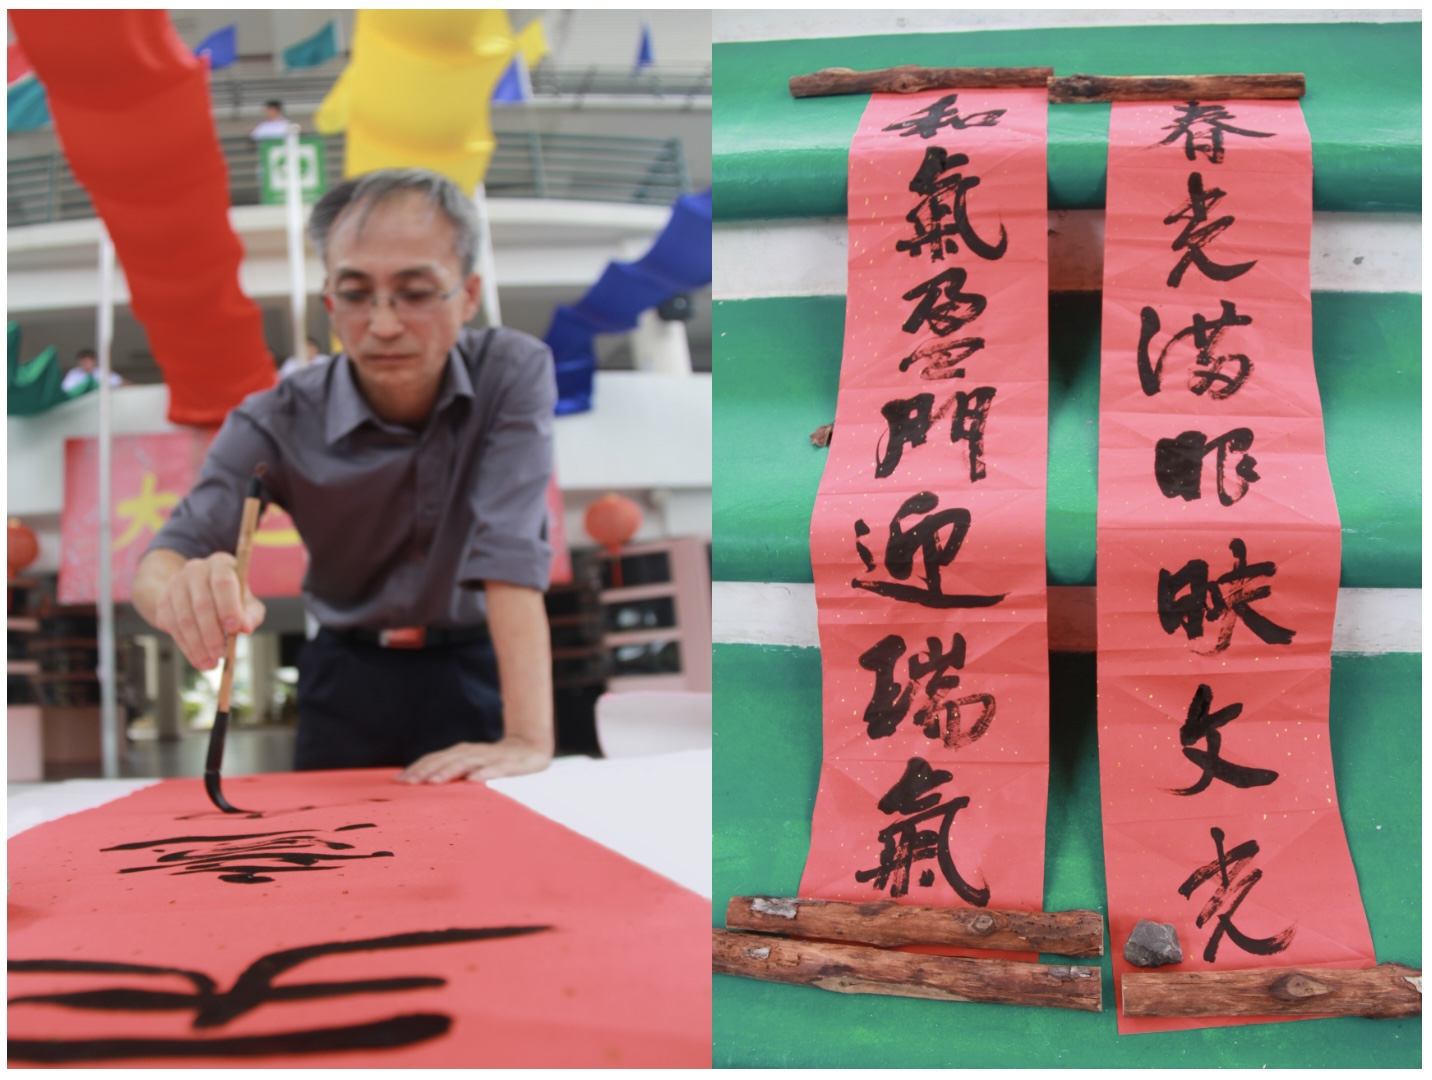 大
春光滿眼映文光
和氣盈門迎瑞氣